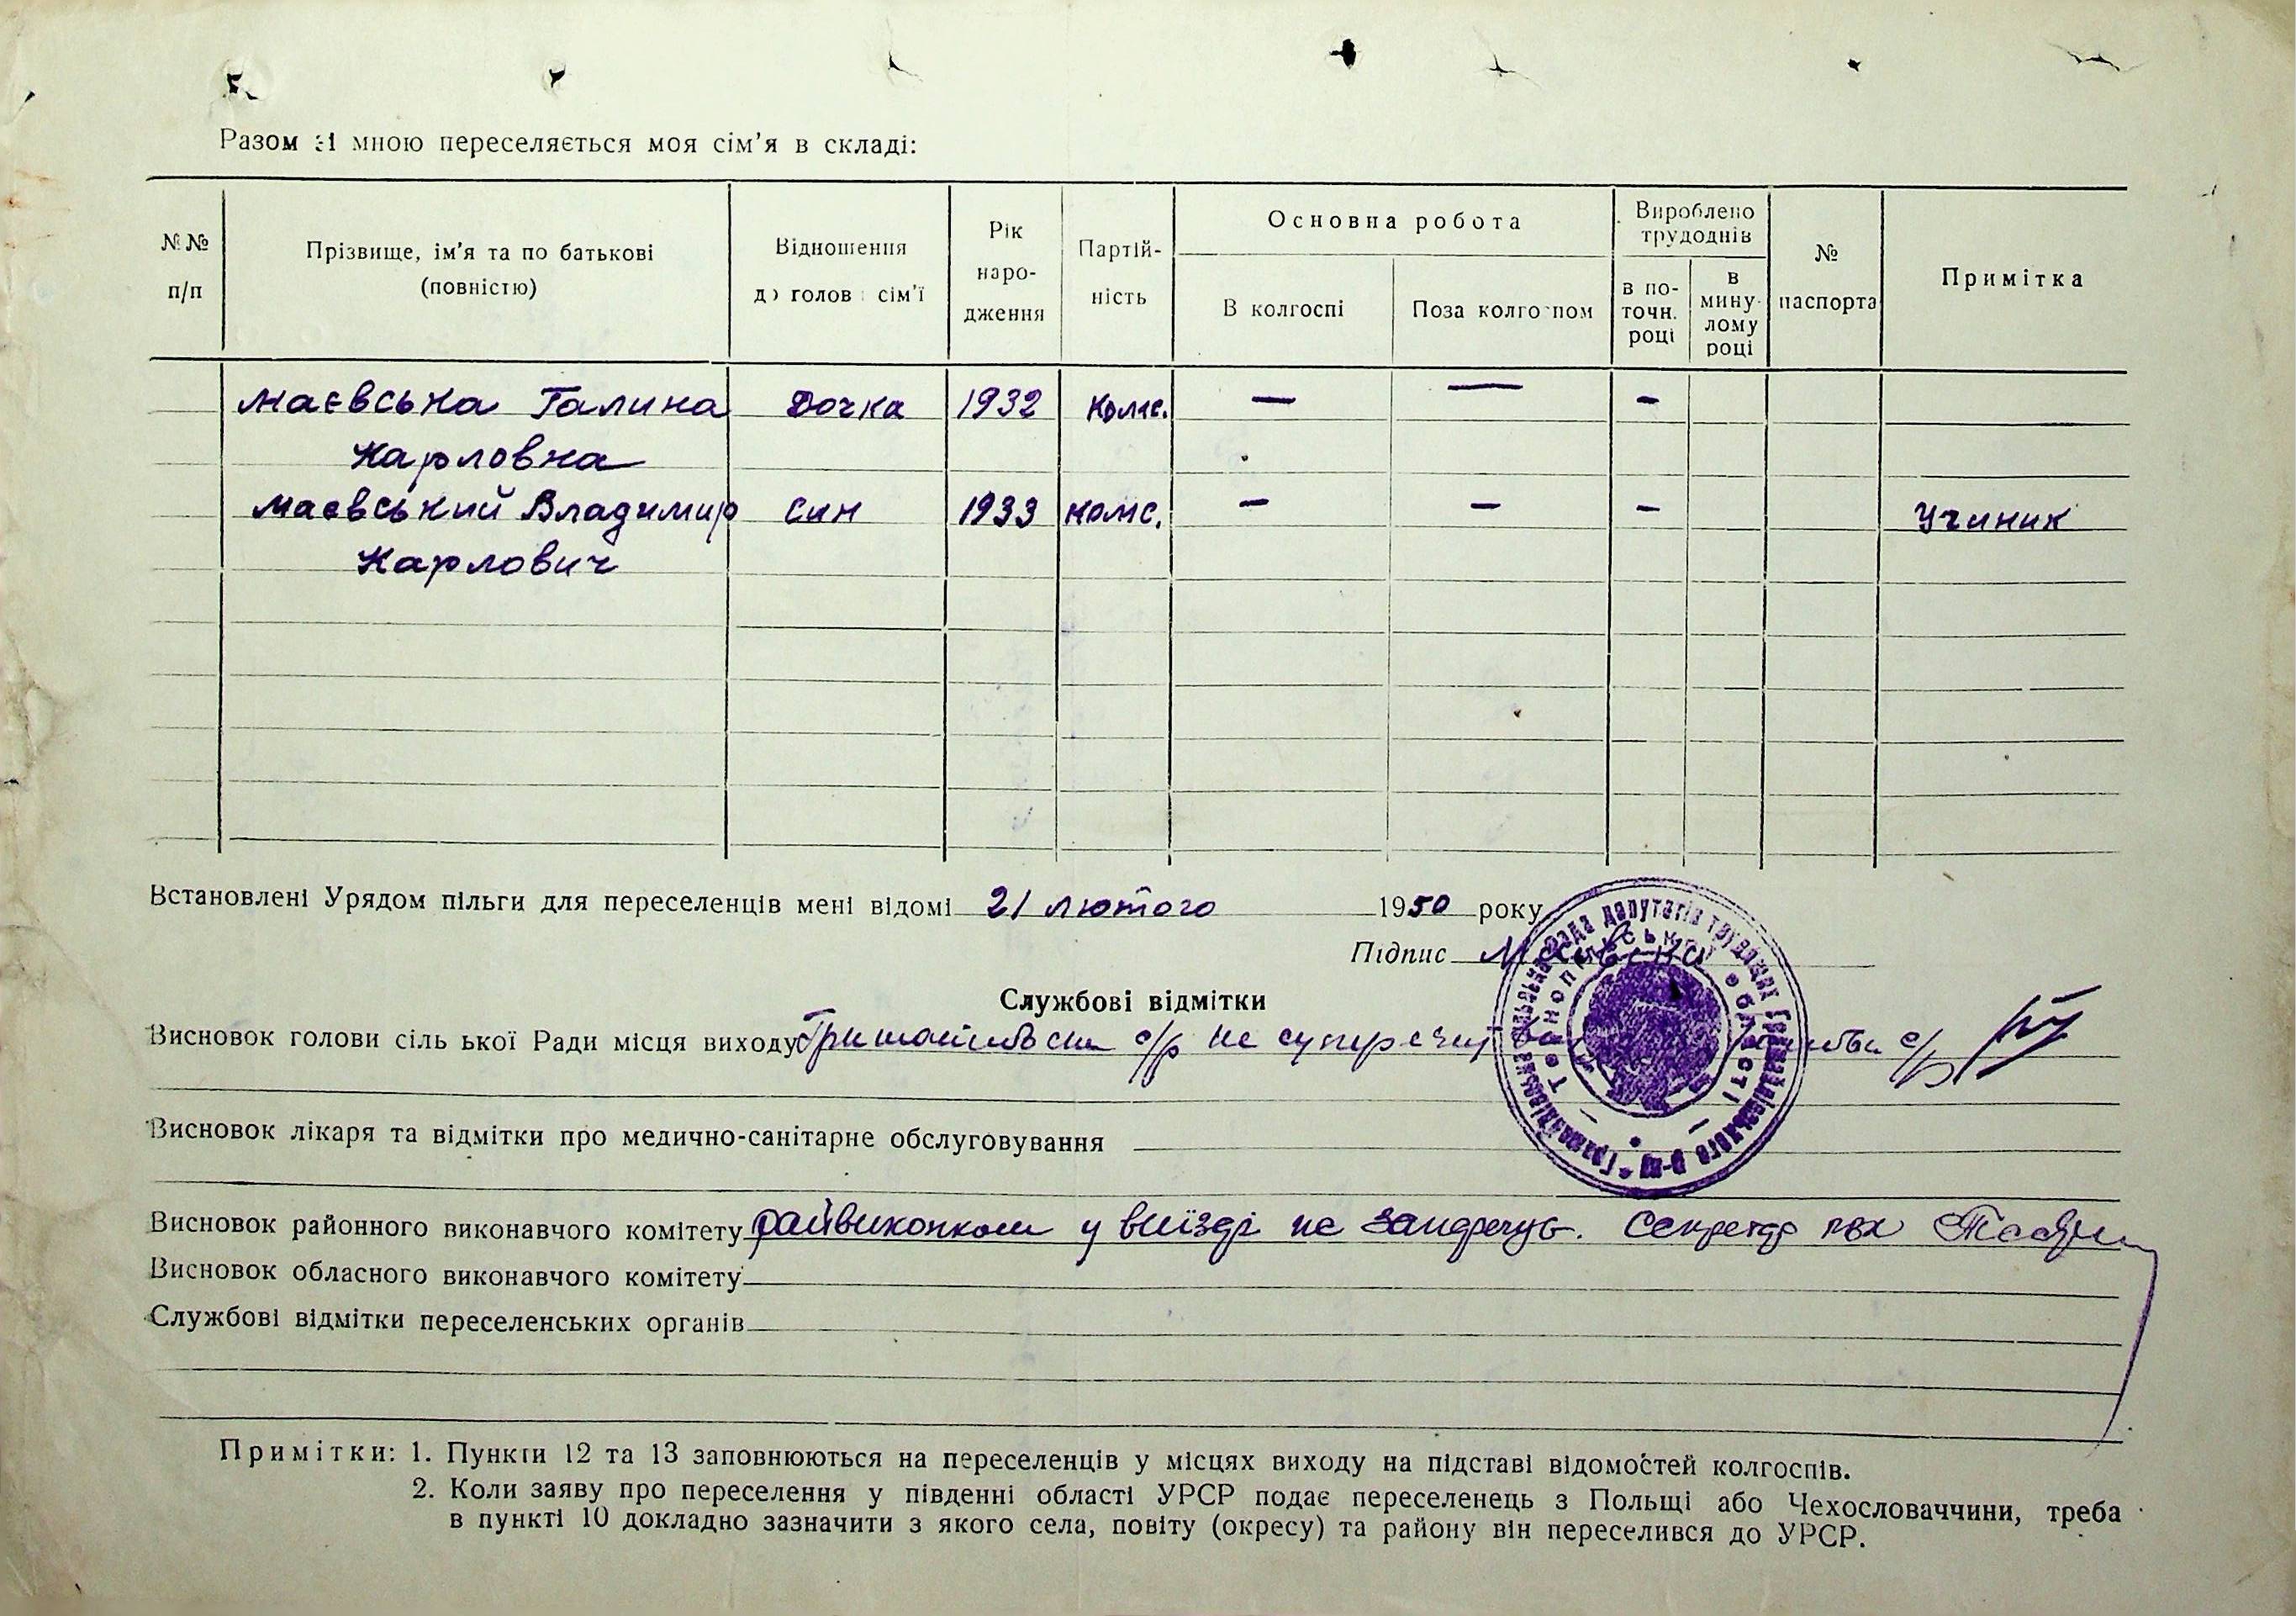 Разом зі мною переселяється моя сім'я в складі:
№№ п/п
Прізвище, ім'я та по батькові (повністю)
Відношення до голови сім'ї
Рік народження
Партійність
Основна робота
В колгоспі
Поза колгоспом
Вироблено трудоднів
в поточн. році
в минулому році
№ паспорта
Примітка
Маєвська Галина Дочка 1932 Комс. — — —
Карловна
Маєвський Владимир син 1933 комс. — — — Учиник
Карлович
Встановлені Урядом пільги для переселенців мені відомі 21 лютого 1950 року
Підпис Маєвська
Службові відмітки
Висновок голови сільської Ради місця виходу с/р не с/р
Висновок лікаря та відмітки про медично-санітарне обслуговування
Висновок районного виконавчого комітету райвиконком у виїзді не заперечує. Секретар
Висновок обласного виконавчого комітету
Службові відмітки переселенських органів
Примітки: 1. Пункти 12 та 13 заповнюються на переселенців у місцях виходу на підставі відомостей колгоспів.
2. Коли заяву про переселення у південні області УРСР подає переселенець з Польщі або Чехословаччини, треба
в пункті 10 докладно зазначити з якого села, повіту (окресу) та району він переселився до УРСР.
рада депутатів трудящих Гримайлівського р-ну
Тернопільської області